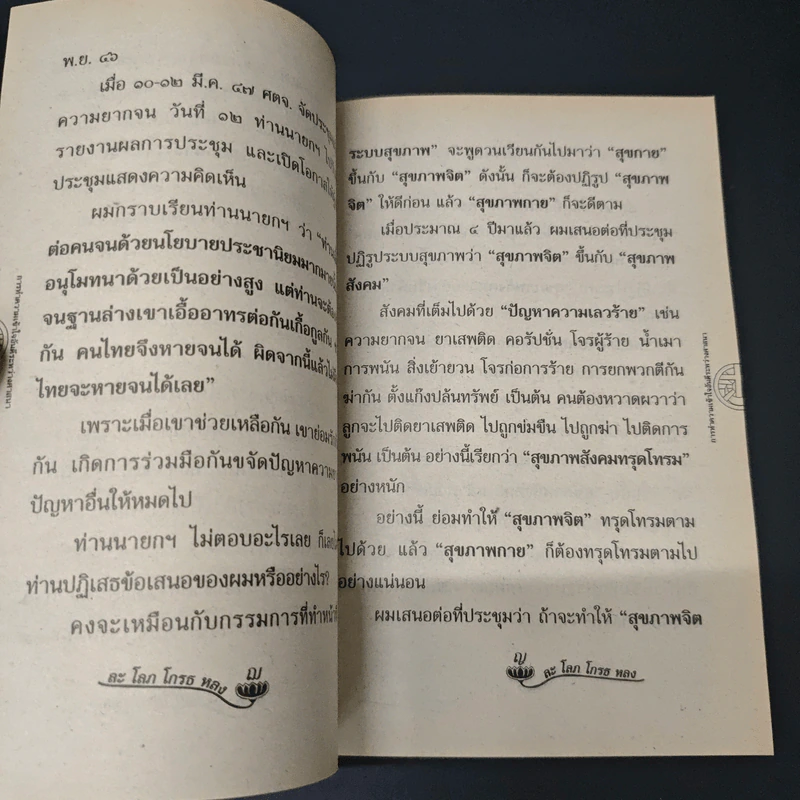 พ.ย. ๔๖
เมื่อ ๑๐-๑๒ มี.ค. ๔๗ ศตจ. จัดประชุม
ความยากจน วันที่ ๑๒ ท่านนายกฯ
รายงานผลการประชุม และเปิดโอกาสให้
ประชุมแสดงความคิดเห็น
ผมกราบเรียนท่านนายกฯ ว่า “ท่าน
ต่อคนจนด้วยนโยบายประชานิยมมากมาย
อนุโมทนาด้วยเป็นอย่างสูง แต่ท่านจะต้อง
จนฐานล่างเขาเอื้ออาทรต่อกันเกื้อกูลกัน
กัน คนไทยจึงหายจนได้ ผิดจากนี้แล้ว
ไทยจะหายจนได้เลย”
เพราะเมื่อเขาช่วยเหลือกัน เขาย่อมรัก
กัน เกิดการร่วมมือกันขจัดปัญหาความ
ปัญหาอื่นให้หมดไป
ท่านนายกฯ ไม่ตอบอะไรเลย ก็เลย
ท่านปฏิเสธข้อเสนอของผมหรืออย่างไร?
คงจะเหมือนกับกรรมการที่ทำหน้าที่
ละ โลภ โกรธ หลง
ระบบสุขภาพ” จะพูดวนเวียนกันไปมาว่า “สุขกาย”
ขึ้นกับ “สุขภาพจิต” ดังนั้น ก็จะต้องปฏิรูป “สุขภาพ
จิต” ให้ดีก่อน แล้ว “สุขภาพกาย” ก็จะดีตาม
เมื่อประมาณ ๔ ปีมาแล้ว ผมเสนอต่อที่ประชุม
ปฏิรูประบบสุขภาพว่า “สุขภาพจิต” ขึ้นกับ “สุขภาพ
สังคม”
สังคมที่เต็มไปด้วย “ปัญหาความเลวร้าย” เช่น
ความยากจน ยาเสพติด คอรัปชั่น โจรผู้ร้าย น้ำเมา
การพนัน สิ่งเย้ายวน โจรก่อการร้าย การยกพวกตีกัน
ฆ่ากัน ตั้งแก๊งปล้นทรัพย์ เป็นต้น คนต้องหวาดผวาว่า
ลูกจะไปติดยาเสพติด ไปถูกข่มขืน ไปถูกฆ่า ไปติดการ
พนัน เป็นต้น อย่างนี้เรียกว่า “สุขภาพสังคมทรุดโทรม”
อย่างหนัก
อย่างนี้ ย่อมทำให้ “สุขภาพจิต” ทรุดโทรมตาม
ไปด้วย แล้ว “สุขภาพกาย” ก็ต้องทรุดโทรมตามไป
อย่างแน่นอน
ผมเสนอต่อที่ประชุมว่า ถ้าจะทำให้ “สุขภาพจิต
ละ โลภ โกรธ หลง